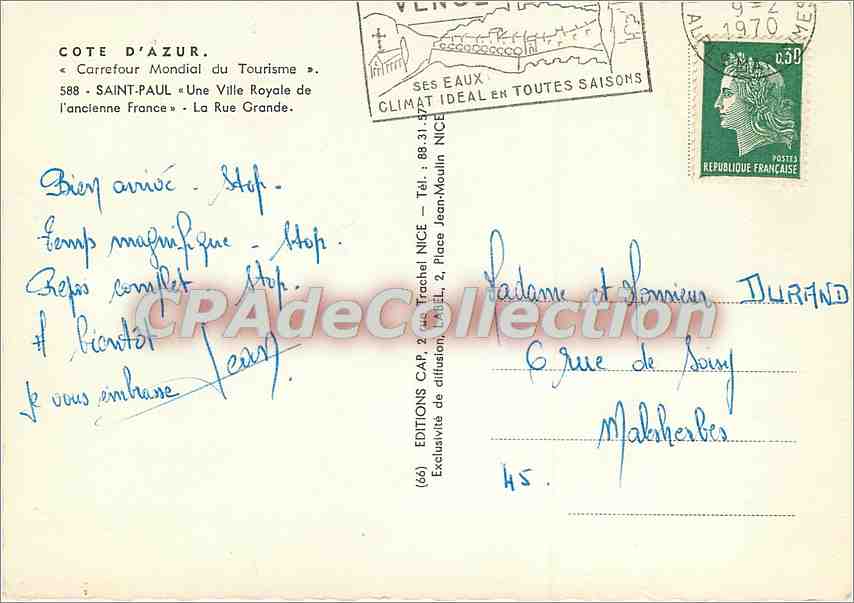 COTE D'AZUR.
« Carrefour Mondial du Tourisme ».
588 - SAINT-PAUL «Une Ville Royale de
l'ancienne France» - La Rue Grande.
Bien arrivé - Stop.
Temps magnifique - Stop.
Repos complet Stop.
A bientôt Jean
je vous embrasse
(66) EDITIONS CAP, 2 rue Trachel NICE — Tél. : 88.31.57
Exclusivité de diffusion, LABEL, 2, Place Jean-Moulin NICE
VENCE
SES EAUX
CLIMAT IDEAL EN TOUTES SAISONS
9-2
1970
0,30
POSTES
REPUBLIQUE FRANÇAISE
Madame et Monsieur DURAND
6 rue de Soisy
Malsherbes
45.
CPAdeCollection